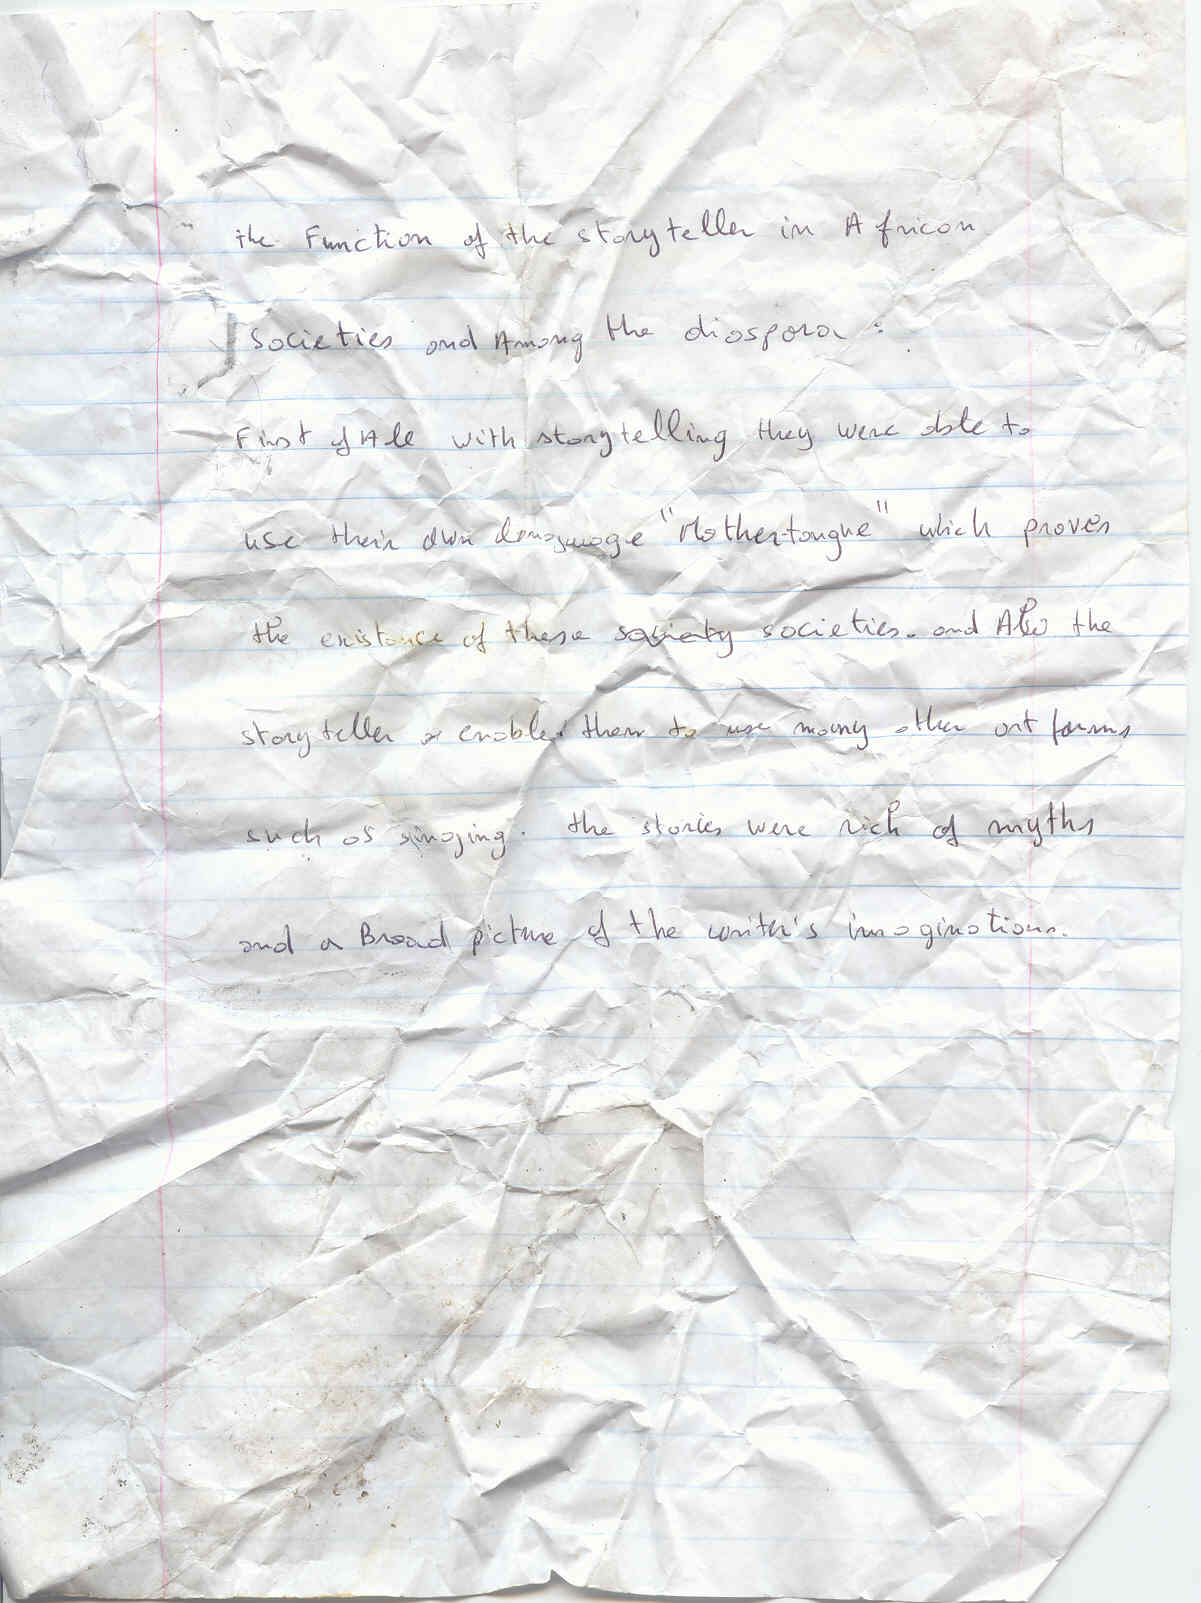 the Function of the storyteller in African
Societies and Among the diaspora :
First of All with storytelling they were able to
use their own language "Mother-tongue" which proves
the existance of these society societies. and Also the
storyteller enabled them to use many other art forms
such as singing. the stories were rich of myths
and a Broad picture of the writer's imaginations.